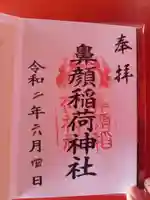 奉拝
鼻顔稲荷神社
令和二年六月四日